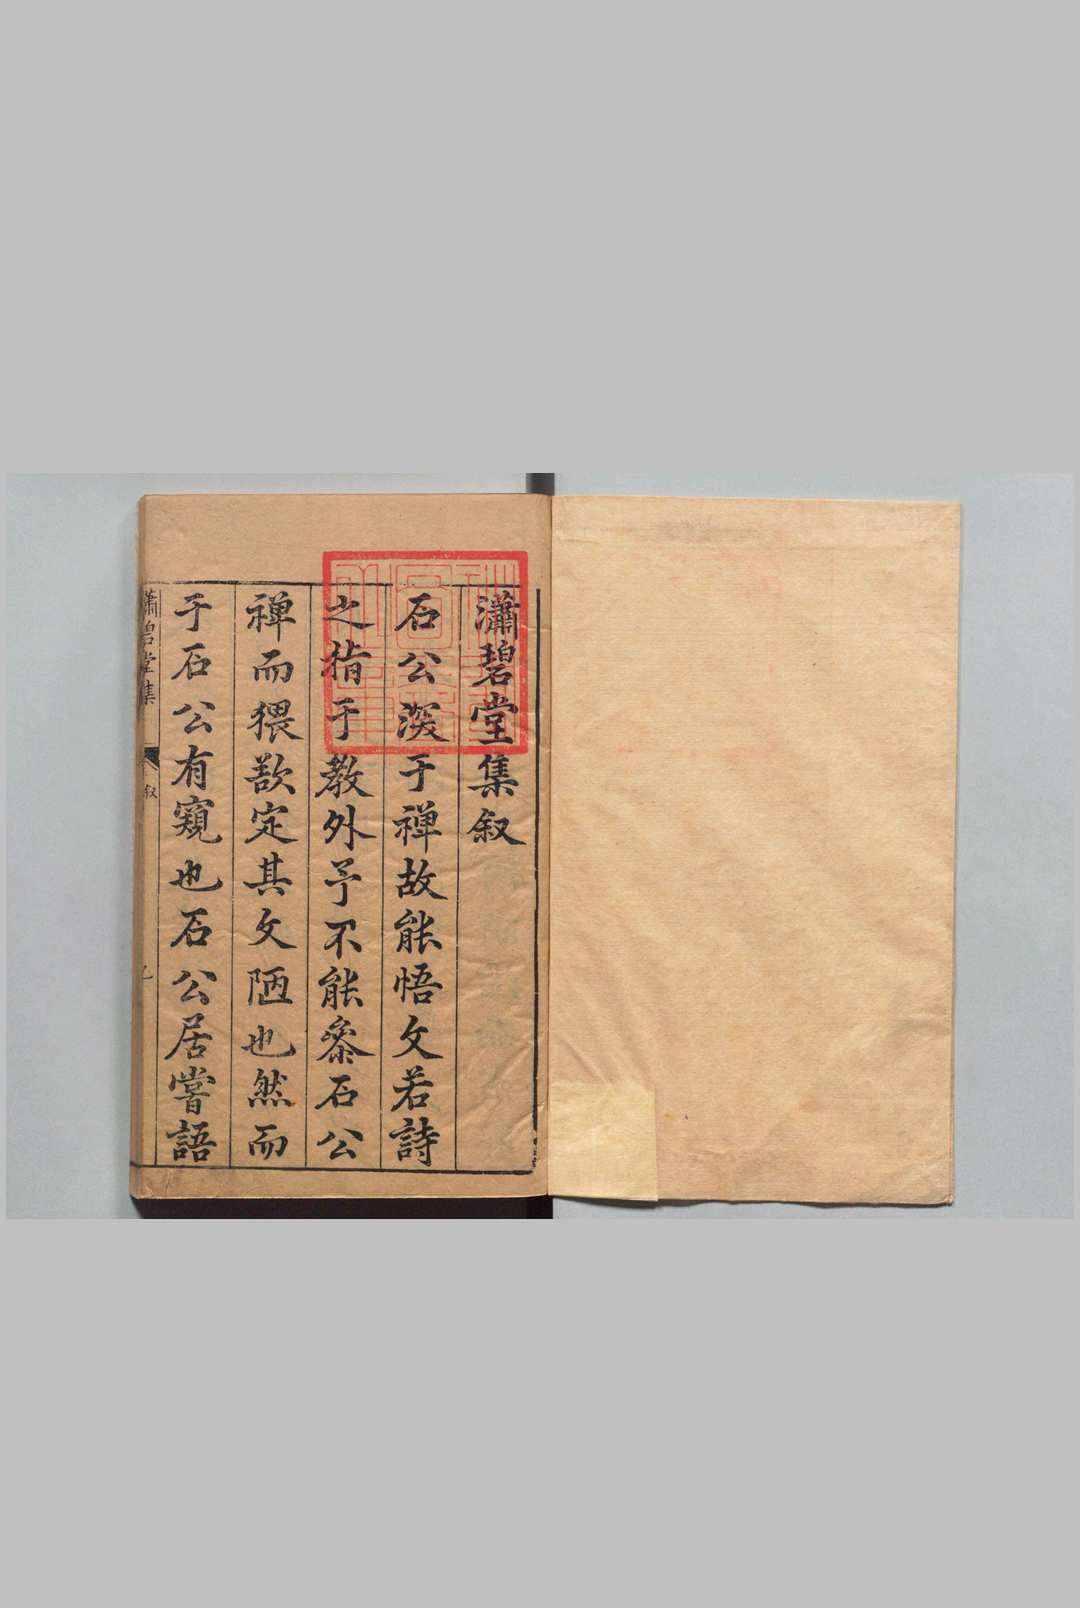 瀟碧堂集叙
石公深于禅故能悟文若詩
之指于教外予不能叅石公
禅而猥欲定其文陋也然而
于石公有窺也石公居嘗語
瀟碧堂集
叙